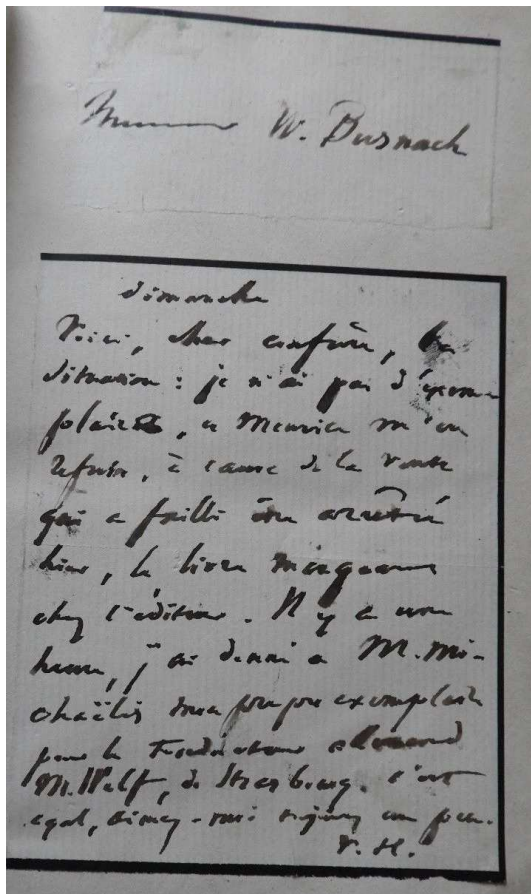 Monsieur W. Busnach
dimanche
Voici, cher confrère, la
situation : je n'ai pas d'exem-
plaires, et Meurice m'en
refuse, à cause de la vente
qui a failli être arrêtée
hier, le livre manquant
chez l'éditeur. Il y a une
heure, j'ai donné a M. Mi-
chaëlis mon propre exemplaire
pour le traducteur allemand
M. Wolf, de Strasbourg. C'est
egal, aimez-moi toujours un peu.
V. H.